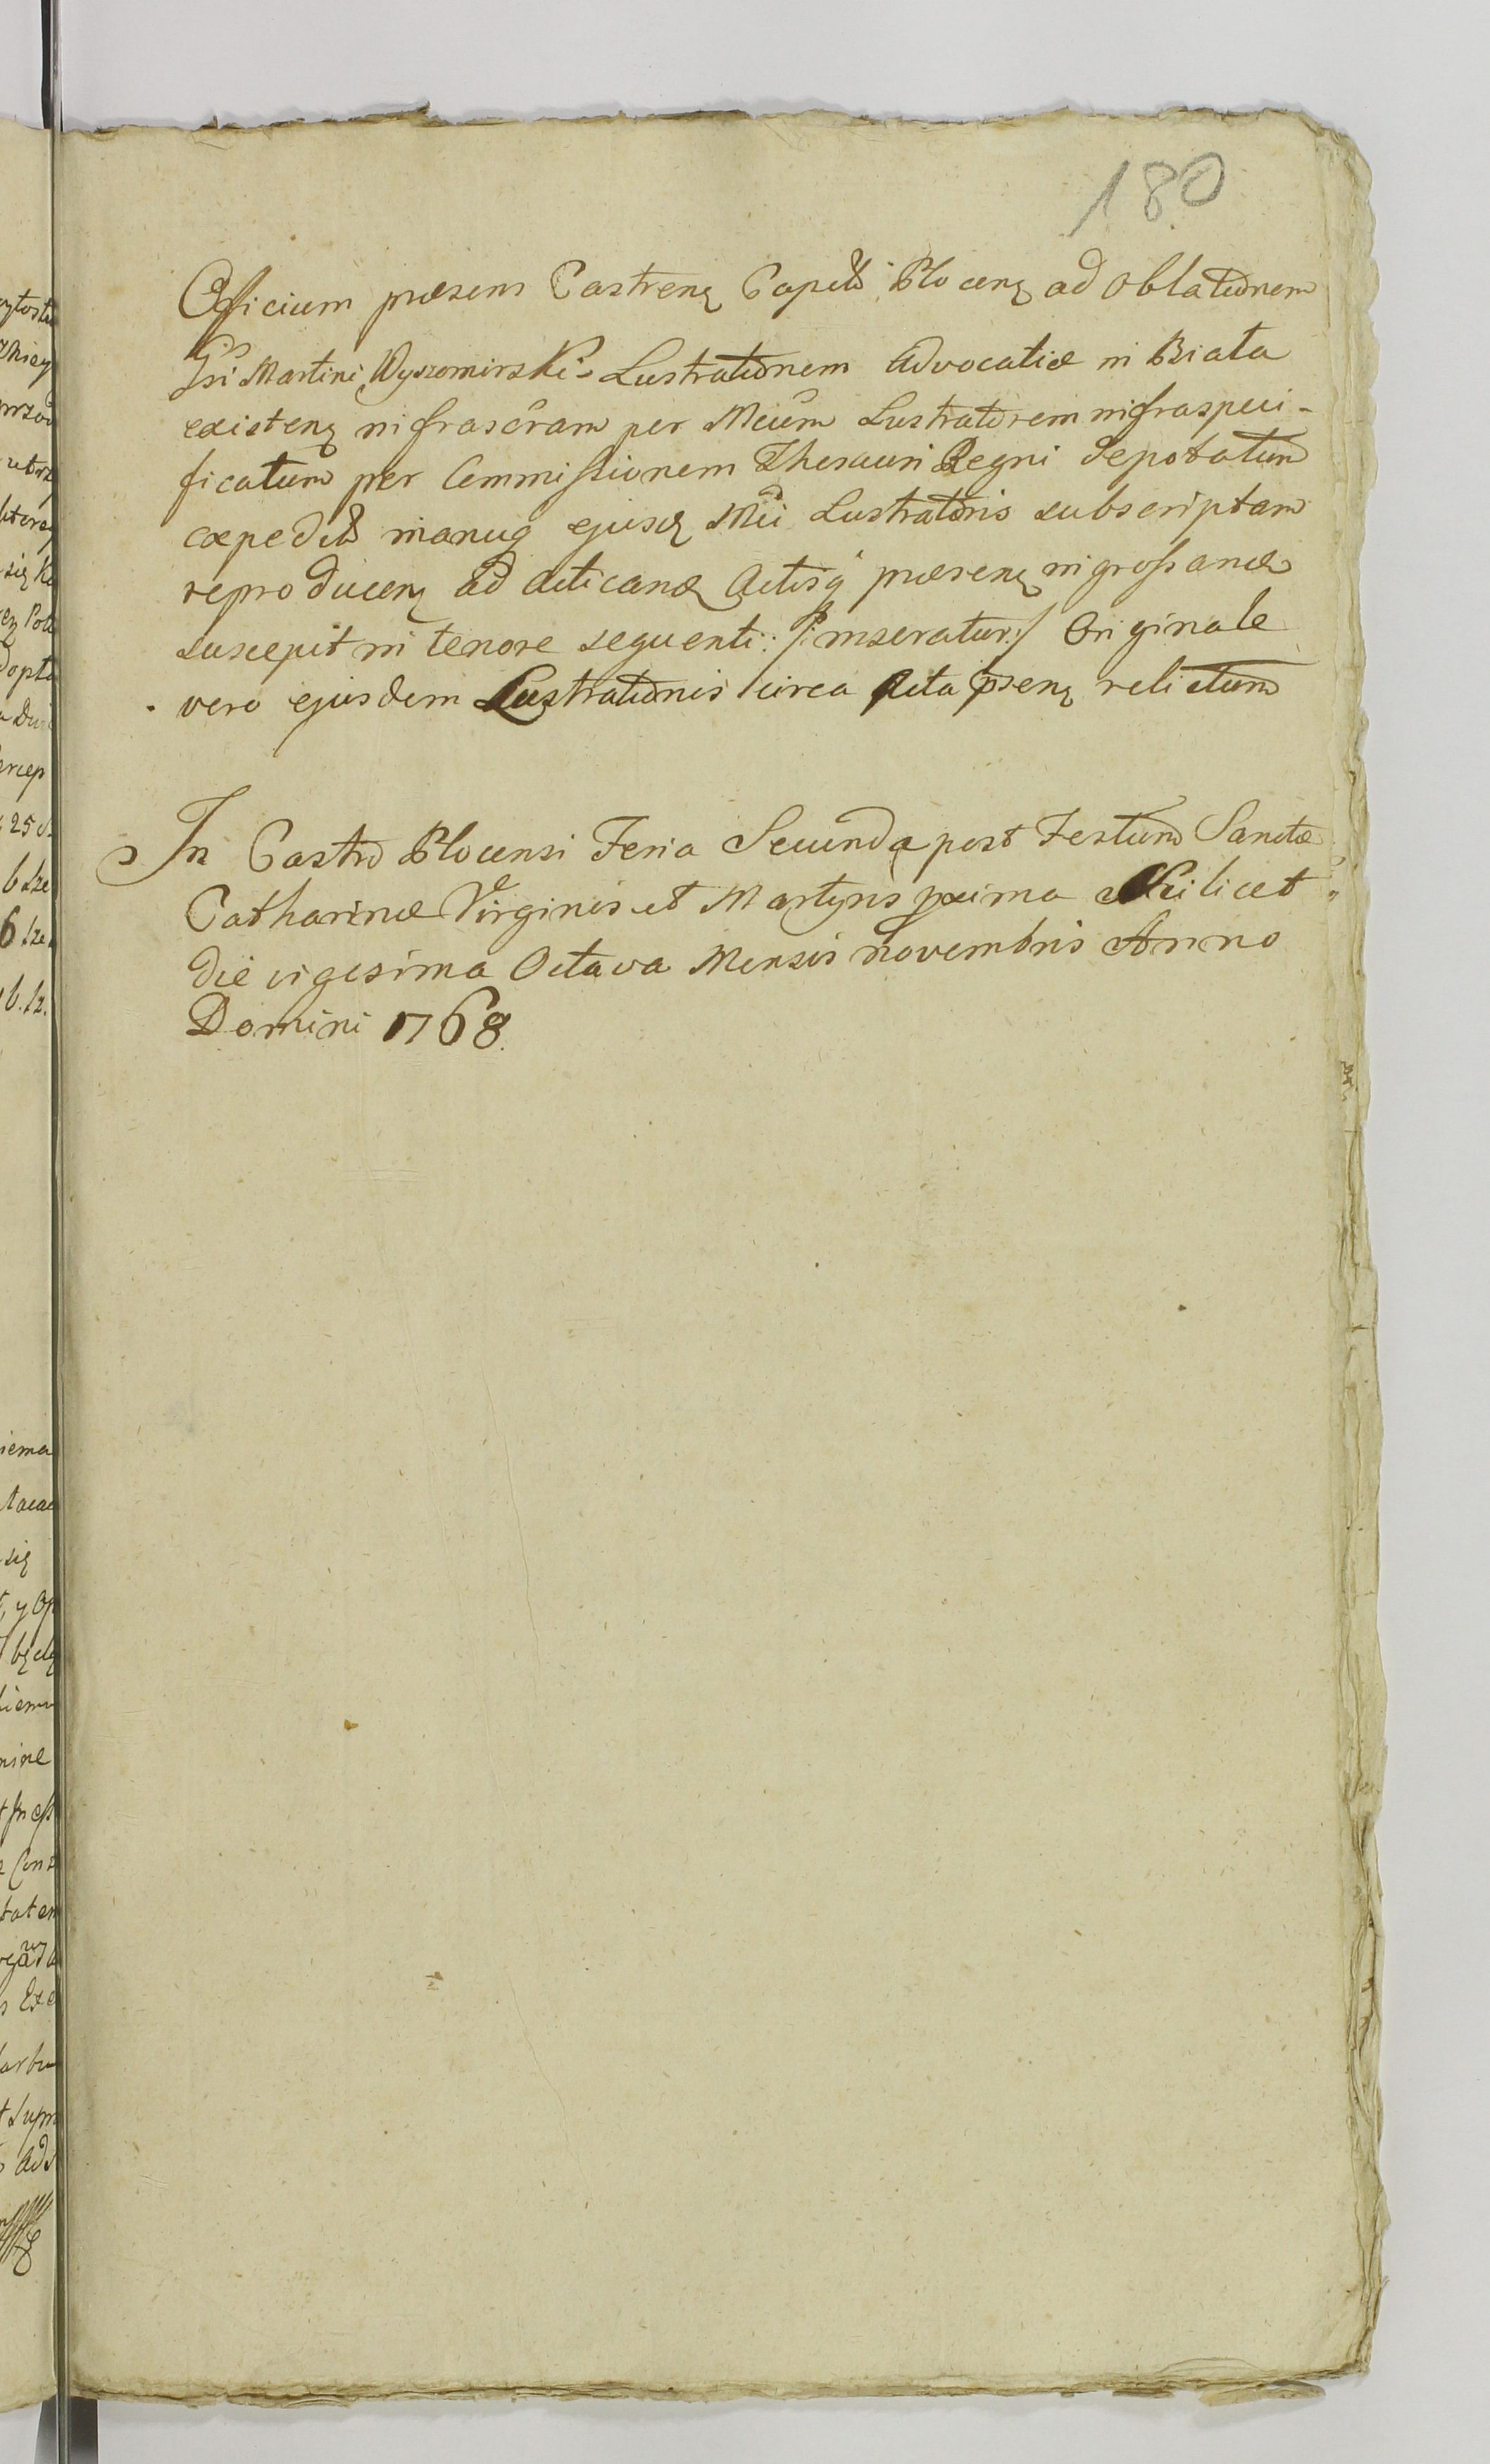 180
Officium præsens Castrenẽ Capitł Plocenẽ ad oblationem
Gsi Martini Wyszomirski Lustrationem Advocatiæ in Biała
existenẽ infrascram per Mcum Lustratorem infraspeci-
ficatum per Commissionem Thesauri Regni Depotatum
expedit manuq ejusd Mci Lustratoris subscriptam
reproducenẽ ad acticand Actisq præsenẽ ingrossand
suscepit in tenore sequenti: /:inseratur:/ Originale
vero ejusdem Lustrationis circa Acta psenẽ relictum
In Castro Plocensi Feria Secunda post Festum Sanctæ
Catharinæ Virginis et Martyris pxima scilicet
Die vigesima Octava Mensis Novembris Anno
Domini 1768.